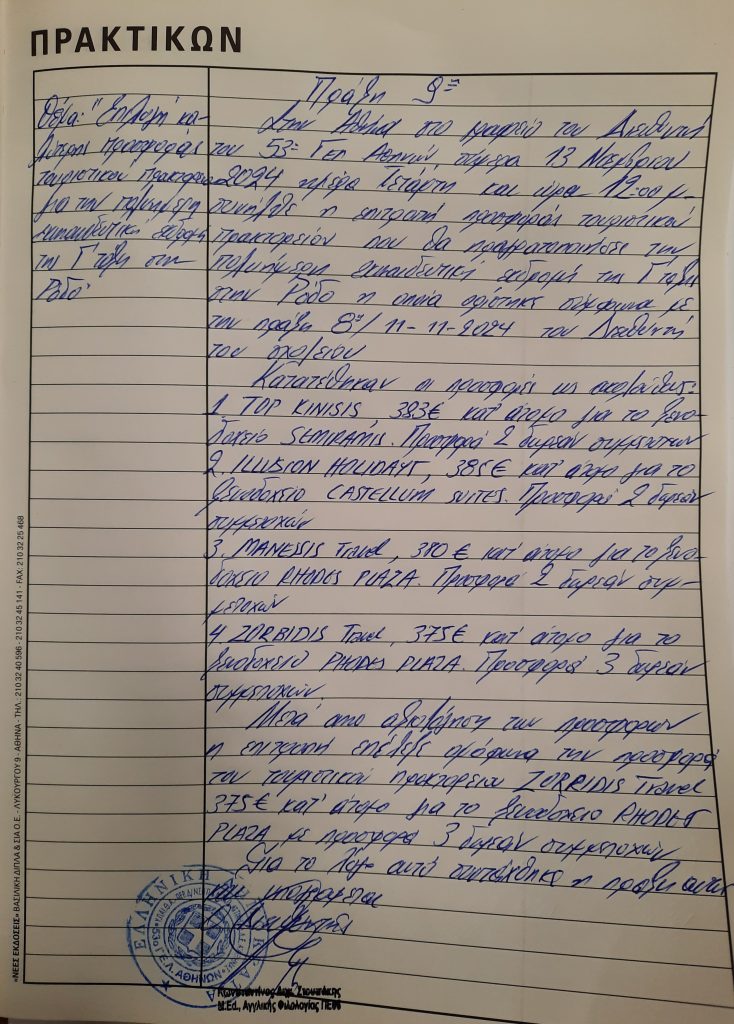 ΠΡΑΚΤΙΚΩΝ
Πράξη 9η
Θέμα: "Επιλογή κα-
λύτερης προσφοράς
τουριστικού πρακτορείου
για την πολυήμερη
εκπαιδευτική εκδρομή
της Γ' τάξη στην
Ρόδο"
Στην Αθήνα στο γραφείο του Διευθυντή
του 53ου Γελ Αθηνών, σήμερα 13 Νοεμβρίου
2024 ημέρα Τετάρτη και ώρα 12:00 μ
συνήλθε η επιτροπή προσφοράς τουριστικού
πρακτορείου που θα πραγματοποιήσει την
πολυήμερη εκπαιδευτική εκδρομή της Γ' τάξης
στην Ρόδο η οποία ορίστηκε σύμφωνα με
την πράξη 8η/11-11-2024 του Διευθυντή
του σχολείου
Κατατέθηκαν οι προσφορές ως ακολούθως:
1. TOP KINISIS 383€ κατ' άτομο για το ξενο-
δοχείο SEMIRAMIS. Προσφορά 2 δωρεάν συμμετοχών
2. ILLUSION HOLIDAYS, 385€ κατ' άτομο για το
ξενοδοχείο CASTELLUM SUITES. Προσφορά 2 δωρεάν
συμμετοχών
3. MANESSIS Travel, 380€ κατ' άτομο για το ξενο-
δοχείο RHODES PLAZA. Προσφορά 2 δωρεάν συμ-
μετοχών
4. ZORBIDIS Travel, 375€ κατ' άτομο για το
ξενοδοχείο RHODES PLAZA. Προσφορά 3 δωρεάν
συμμετοχών.
Μετά από αξιολόγηση των προσφορών
η επιτροπή επέλεξε ομόφωνα την προσφορά
του τουριστικού πρακτορείου ZORBIDIS Travel
375€ κατ' άτομο για το ξενοδοχείο RHODES
PLAZA με προσφορά 3 δωρεάν συμμετοχών
Για το λόγο αυτό συντάχθηκε η πράξη αυτή
και υπογράφεται
Διευθυντής
ΕΛΛΗΝΙΚΗ
ΓΕΛ. ΑΘΗΝΩΝ
Κωνσταντίνος Δημ.
M.Ed., Αγγλικής Φιλολογίας ΠΕ06
«ΝΕΕΣ ΕΚΔΟΣΕΙΣ» ΒΑΣΙΛΙΚΗ ΔΙΠΛΑ & ΣΙΑ Ο.Ε. - ΛΥΚΟΥΡΓΟΥ 9 - ΑΘΗΝΑ - ΤΗΛ.: 210 32 40 596 - 210 32 45 141 - FAX: 210 32 25 468